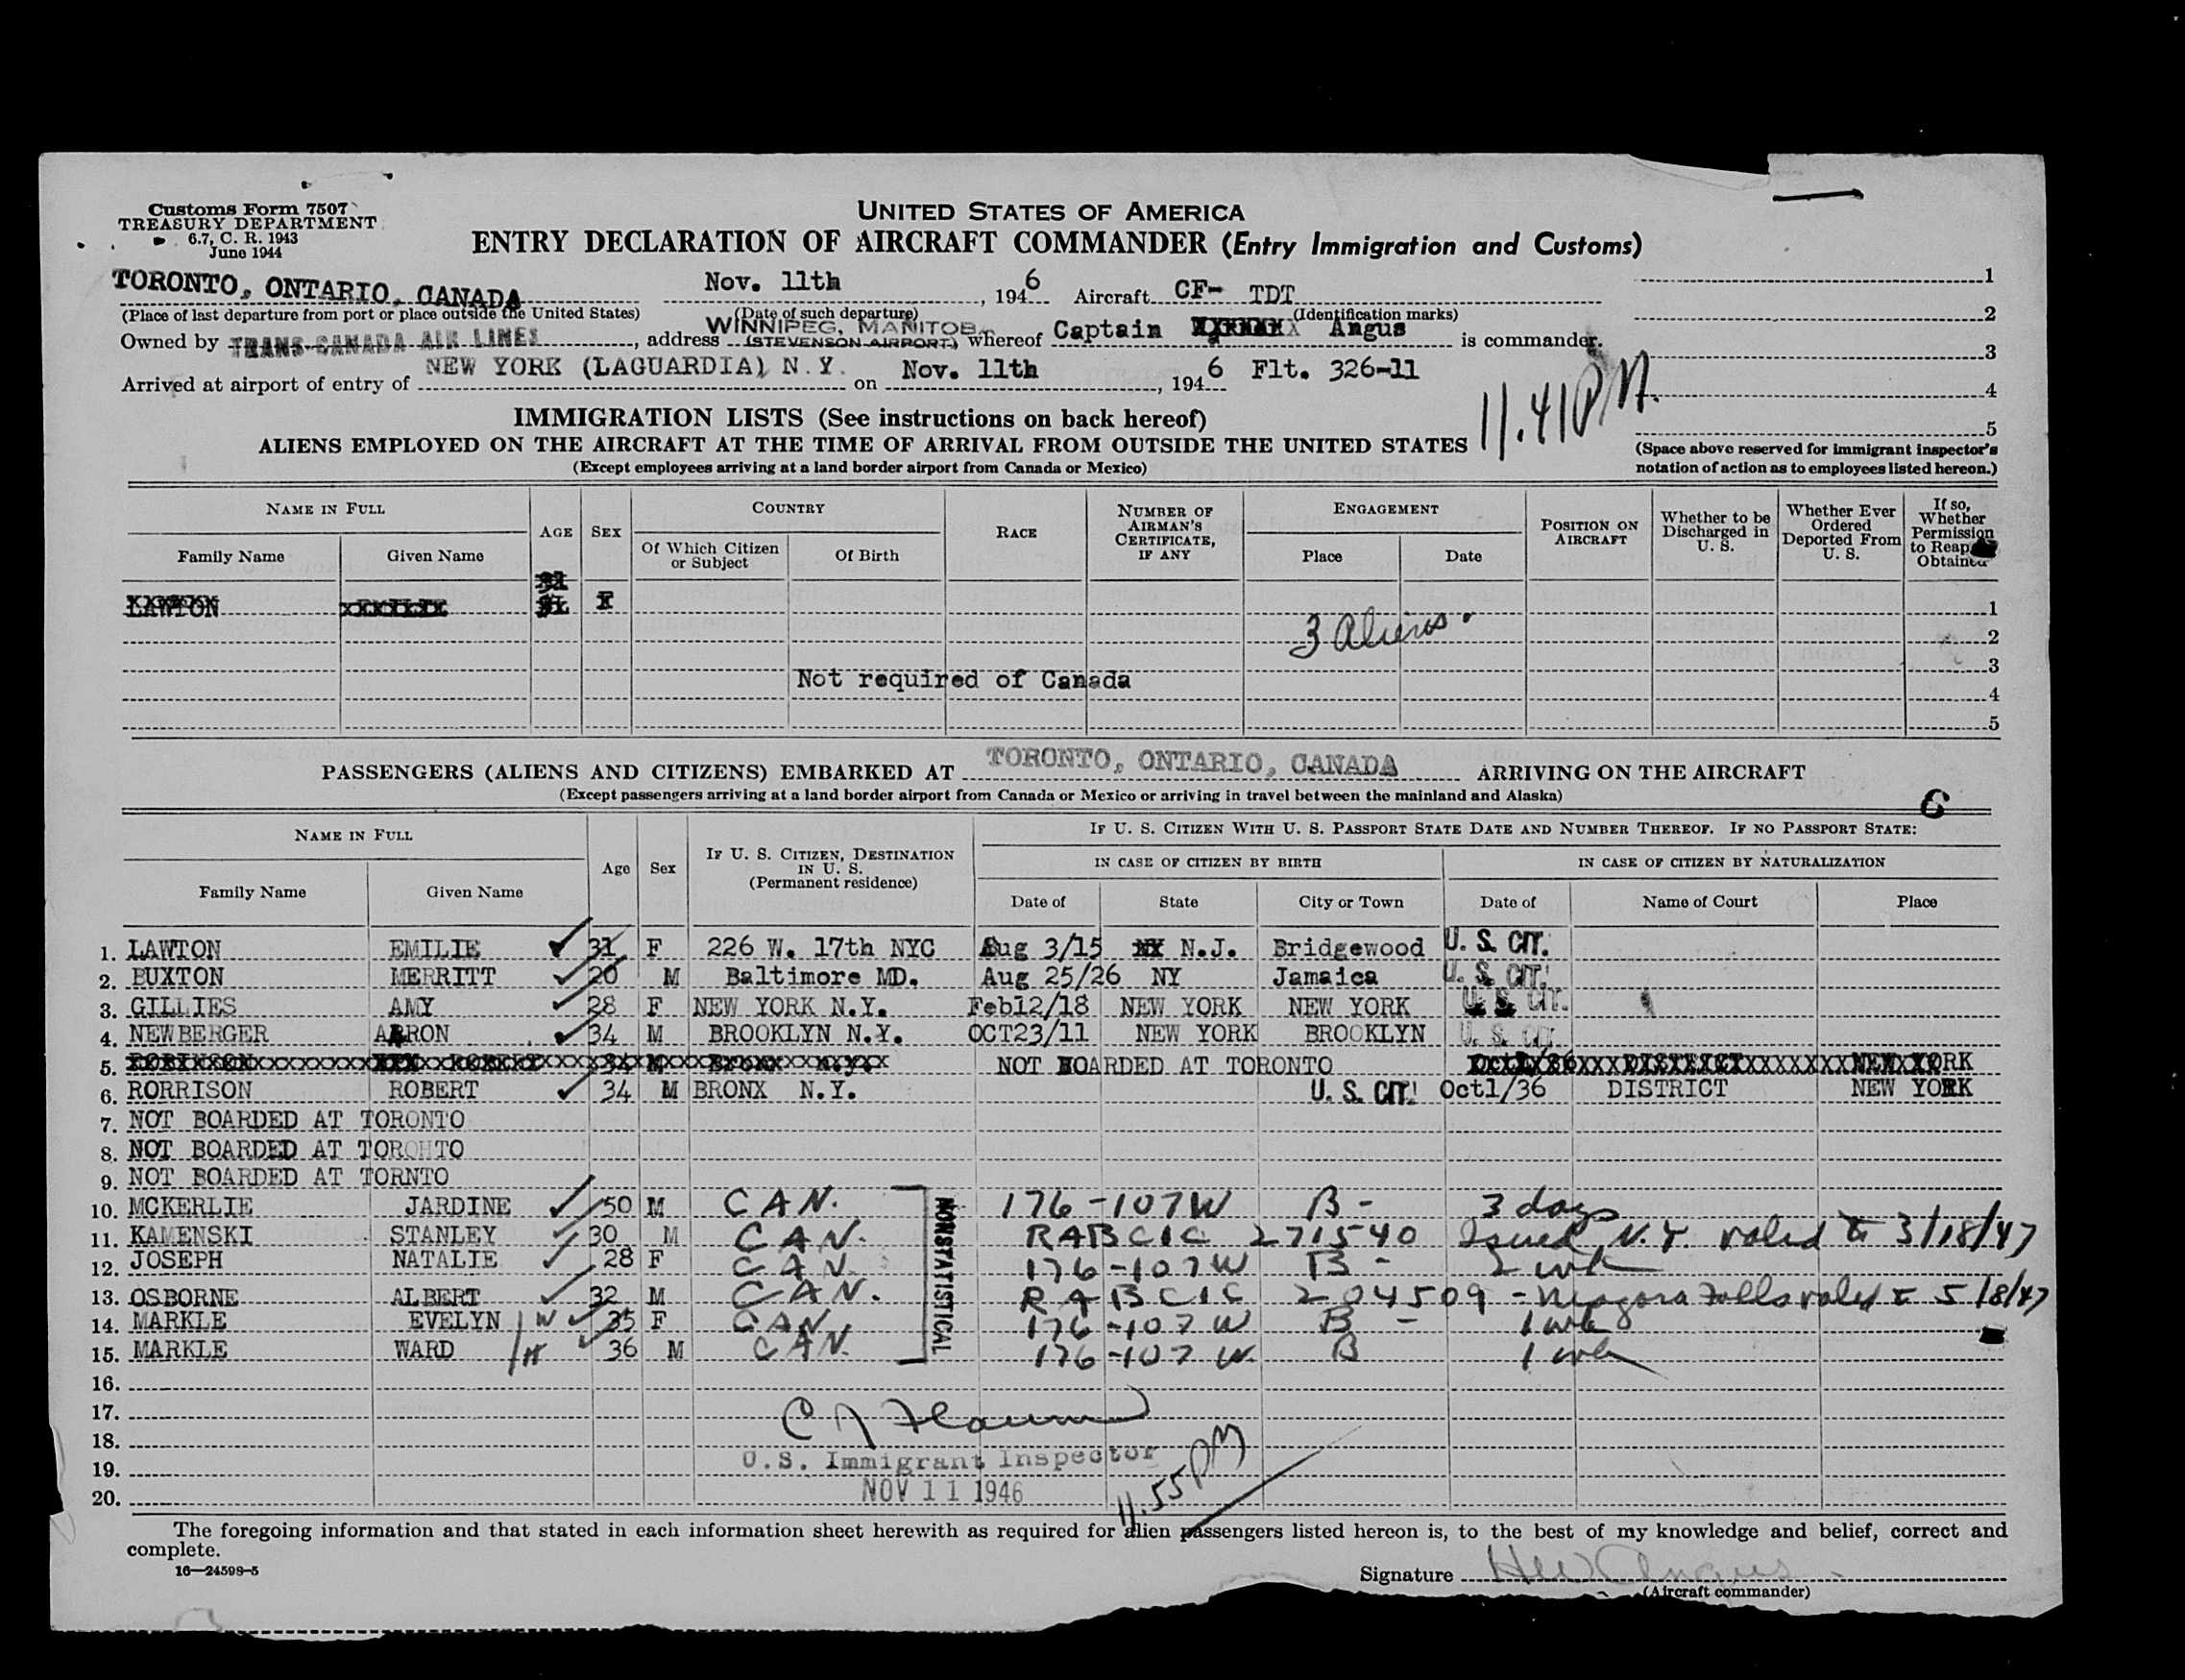 Customs Form 7507
TREASURY DEPARTMENT
6.7, C. R. 1943
June 1944
UNITED STATES OF AMERICA
ENTRY DECLARATION OF AIRCRAFT COMMANDER (Entry Immigration and Customs)
TORONTO, ONTARIO, CANADA Nov. 11th, 1946 Aircraft CF- TDT 1
(Place of last departure from port or place outside the United States) (Date of such departure) (Identification marks) 2
Owned by TRANS-CANADA AIR LINES, address WINNIPEG, MANITOB (STEVENSON AIRPORT) whereof Captain Angus is commander. 3
Arrived at airport of entry of NEW YORK (LAGUARDIA) N.Y. on Nov. 11th, 1946 Flt. 326-11 4
11.41 PM.
5
IMMIGRATION LISTS (See instructions on back hereof)
ALIENS EMPLOYED ON THE AIRCRAFT AT THE TIME OF ARRIVAL FROM OUTSIDE THE UNITED STATES
(Except employees arriving at a land border airport from Canada or Mexico)
(Space above reserved for immigrant inspector's
notation of action as to employees listed hereon.)
NAME IN FULL AGE SEX COUNTRY RACE NUMBER OF AIRMAN'S CERTIFICATE, IF ANY ENGAGEMENT POSITION ON AIRCRAFT Whether to be Discharged in U. S. Whether Ever Ordered Deported From U. S. If so, Whether Permission to Reap Obtained
Family Name Given Name Of Which Citizen or Subject Of Birth Place Date
LAWTON 1
3 aliens. 2
3
Not required of Canada
4
5
PASSENGERS (ALIENS AND CITIZENS) EMBARKED AT TORONTO, ONTARIO, CANADA ARRIVING ON THE AIRCRAFT
(Except passengers arriving at a land border airport from Canada or Mexico or arriving in travel between the mainland and Alaska)
6
NAME IN FULL Age Sex IF U. S. CITIZEN, DESTINATION IN U. S. (Permanent residence) IF U. S. CITIZEN WITH U. S. PASSPORT STATE DATE AND NUMBER THEREOF. IF NO PASSPORT STATE:
IN CASE OF CITIZEN BY BIRTH IN CASE OF CITIZEN BY NATURALIZATION
Family Name Given Name Date of State City or Town Date of Name of Court Place
1. LAWTON EMILIE 31 F 226 W. 17th NYC Aug 3/15 N.J. Bridgewood U. S. CIT.
2. BUXTON MERRITT 20 M Baltimore MD. Aug 25/26 NY Jamaica U. S. CIT.
3. GILLIES AMY 28 F NEW YORK N.Y. Feb12/18 NEW YORK NEW YORK U. S. CIT.
4. NEWBERGER AARON 34 M BROOKLYN N.Y. OCT23/11 NEW YORK BROOKLYN U. S. CIT.
5. NOT BOARDED AT TORONTO
6. RORRISON ROBERT 34 M BRONX N.Y. U. S. CIT. Oct1/36 DISTRICT NEW YORK
7. NOT BOARDED AT TORONTO
8. NOT BOARDED AT TORONTO
9. NOT BOARDED AT TORNTO
10. MCKERLIE JARDINE 50 M CAN. 176-107W B- 3 days
11. KAMENSKI STANLEY 30 M CAN. RABCIC 271540 Issued N.Y. valid to 3/18/47
12. JOSEPH NATALIE 28 F CAN. 176-107W B- 2 wk
13. OSBORNE ALBERT 32 M CAN. RABCIC 204509 - Niagara Falls valid to 5/8/47
14. MARKLE EVELYN W 35 F CAN. 176-107W B - 1 wk
15. MARKLE WARD H 36 M CAN. 176-107 W. B 1 wk
NONSTATISTICAL
16.
17.
18.
19. U.S. Immigrant Inspector
20. NOV 11 1946
11.55 PM
The foregoing information and that stated in each information sheet herewith as required for alien passengers listed hereon is, to the best of my knowledge and belief, correct and
complete.
16—24598-5
Signature HW Angus
(Aircraft commander)